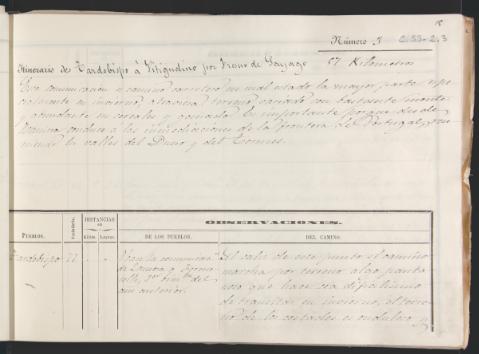 Número 5
Itinerario de Tardobispo á Vitigudino por Pozuelo de Sayago 87 Kilometros
Esta comunicacion es camino carretero en mal estado la mayor parte espe
cialmente en invierno. Atraviesa terreno variado con bastante monte
abundante en cereales y ganado. Es importante porque desde
Zamora conduce a las inmediaciones de la frontera de Portugal,
los valles del Duero y del Tormes.
PUEBLOS. DISTANCIAS OBSERVACIONES.
Kilóm. Leguas. DE LOS PUEBLOS. DEL CAMINO.
Tardobispo 77 " " Véase la comunicacion
de Zamora a Bermi
llo, del
año anterior.
Al salir de este punto el camino
marcha por terreno algo panta
noso que hace sea dificultoso
de transitar en invierno, el terre
no de los costados es ondulado